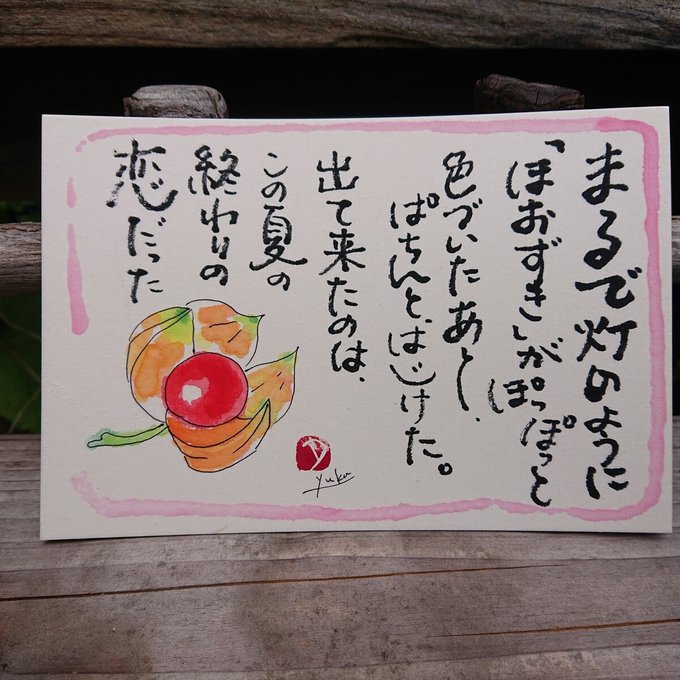 まるで灯のように
「ほおずき」がぽっぽっと
色づいたあと、
ぱちんと、はじけた。
出て来たのは、
この夏の
終わりの
恋だった
y
yuka